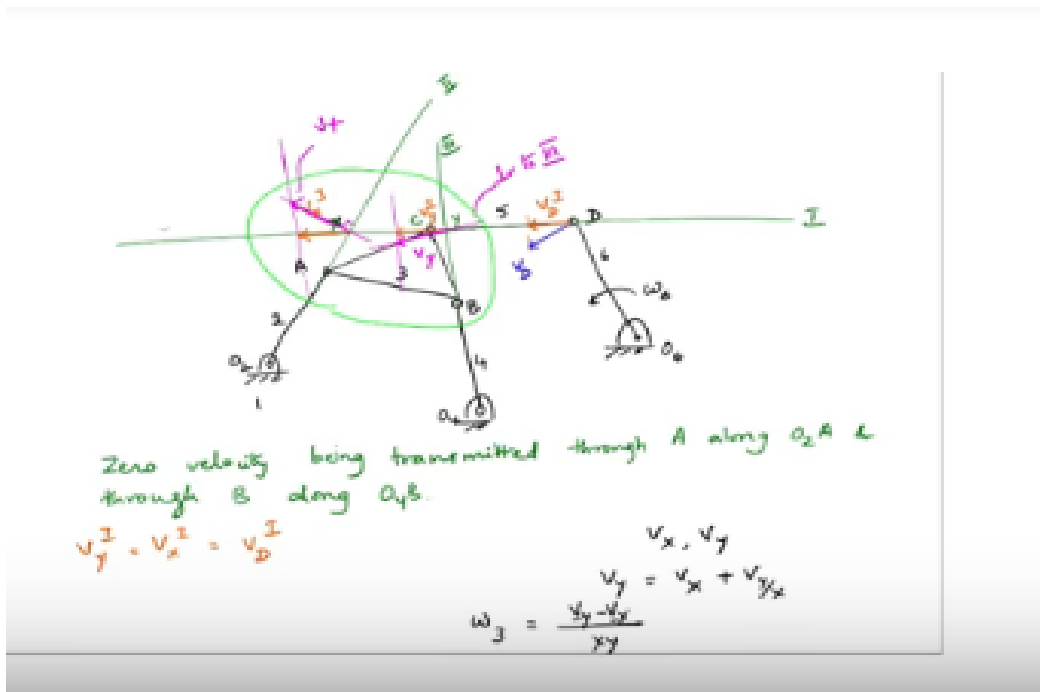 II
⊥ II
III
⊥ III
I
V_D^I
5
D
C
Y
V_y
V_D
A
3
B
6
2
ω_6
O_2
O_6
4
1
O_4
Zero velocity being transmitted through A along O_2A &
through B along O_4B.
V_y^I = V_x^I = V_D^I
V_x, V_y
V_y = V_x + V_y/x
ω_3 = V_y - V_x / xy